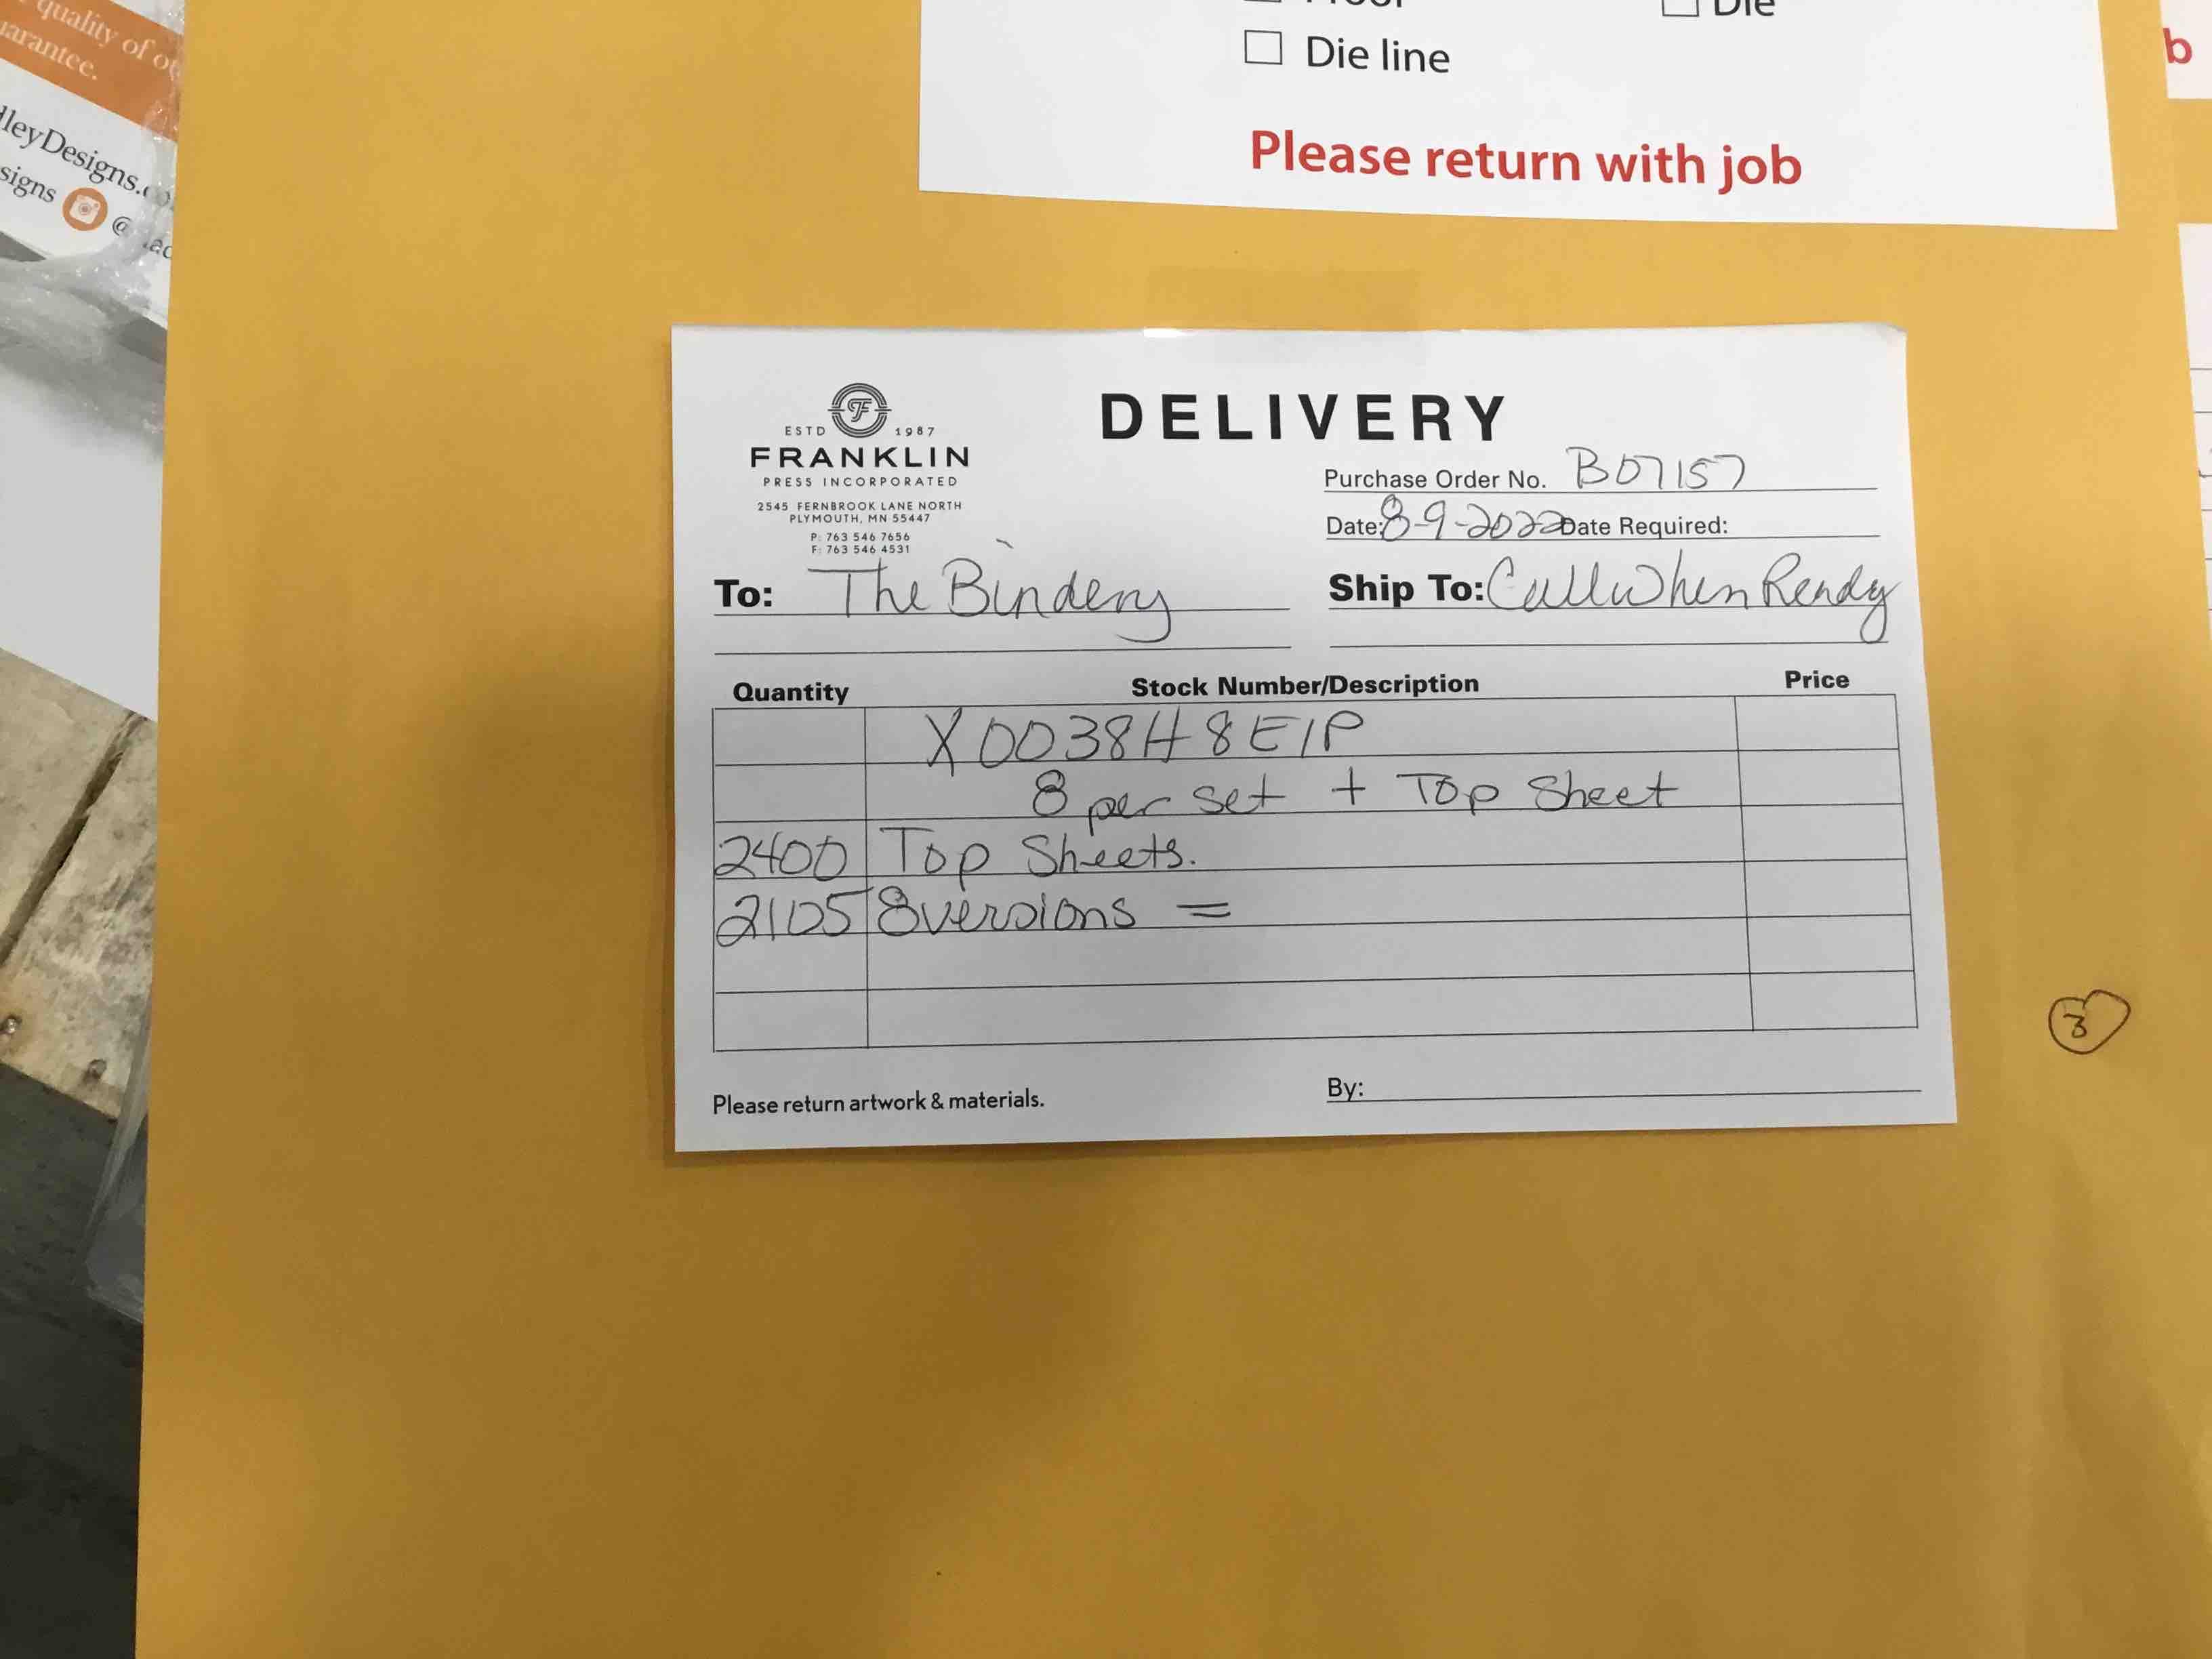 quality of
arantee.
lleyDesigns.
signs @
Die
Die line
Please return with job
b
ESTD 1987
FRANKLIN
PRESS INCORPORATED
2545 FERNBROOK LANE NORTH
PLYMOUTH, MN 55447
P: 763 546 7656
F: 763 546 4531
DELIVERY
Purchase Order No. B07157
Date: 8-9-2022 Date Required:
To: The Bindery
Ship To: Call When Ready
Quantity Stock Number/Description Price
X0038H8E1P
8 per set + Top Sheet
2400 Top Sheets.
2105 8 versions =
Please return artwork & materials.
By:
3